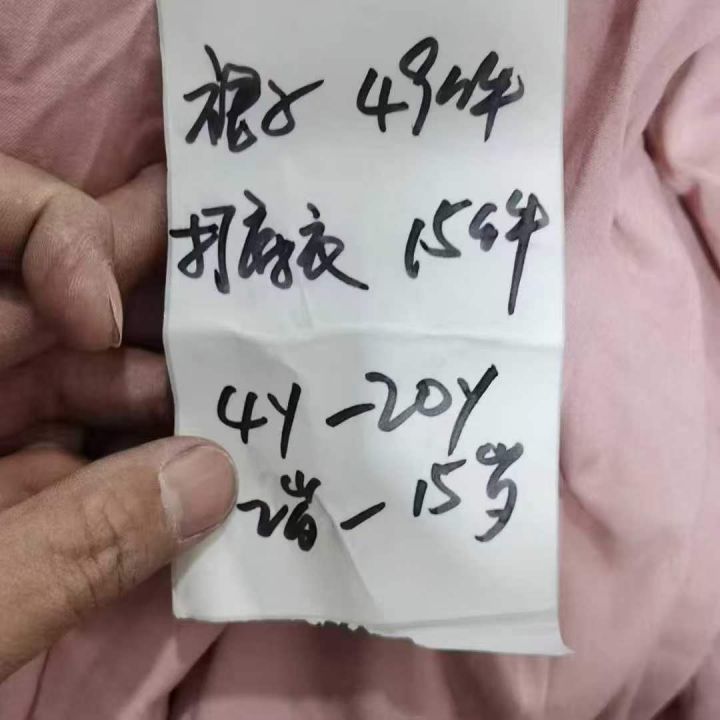 裙子 49件
打底衣 15件
4Y-20Y
2岁-15岁